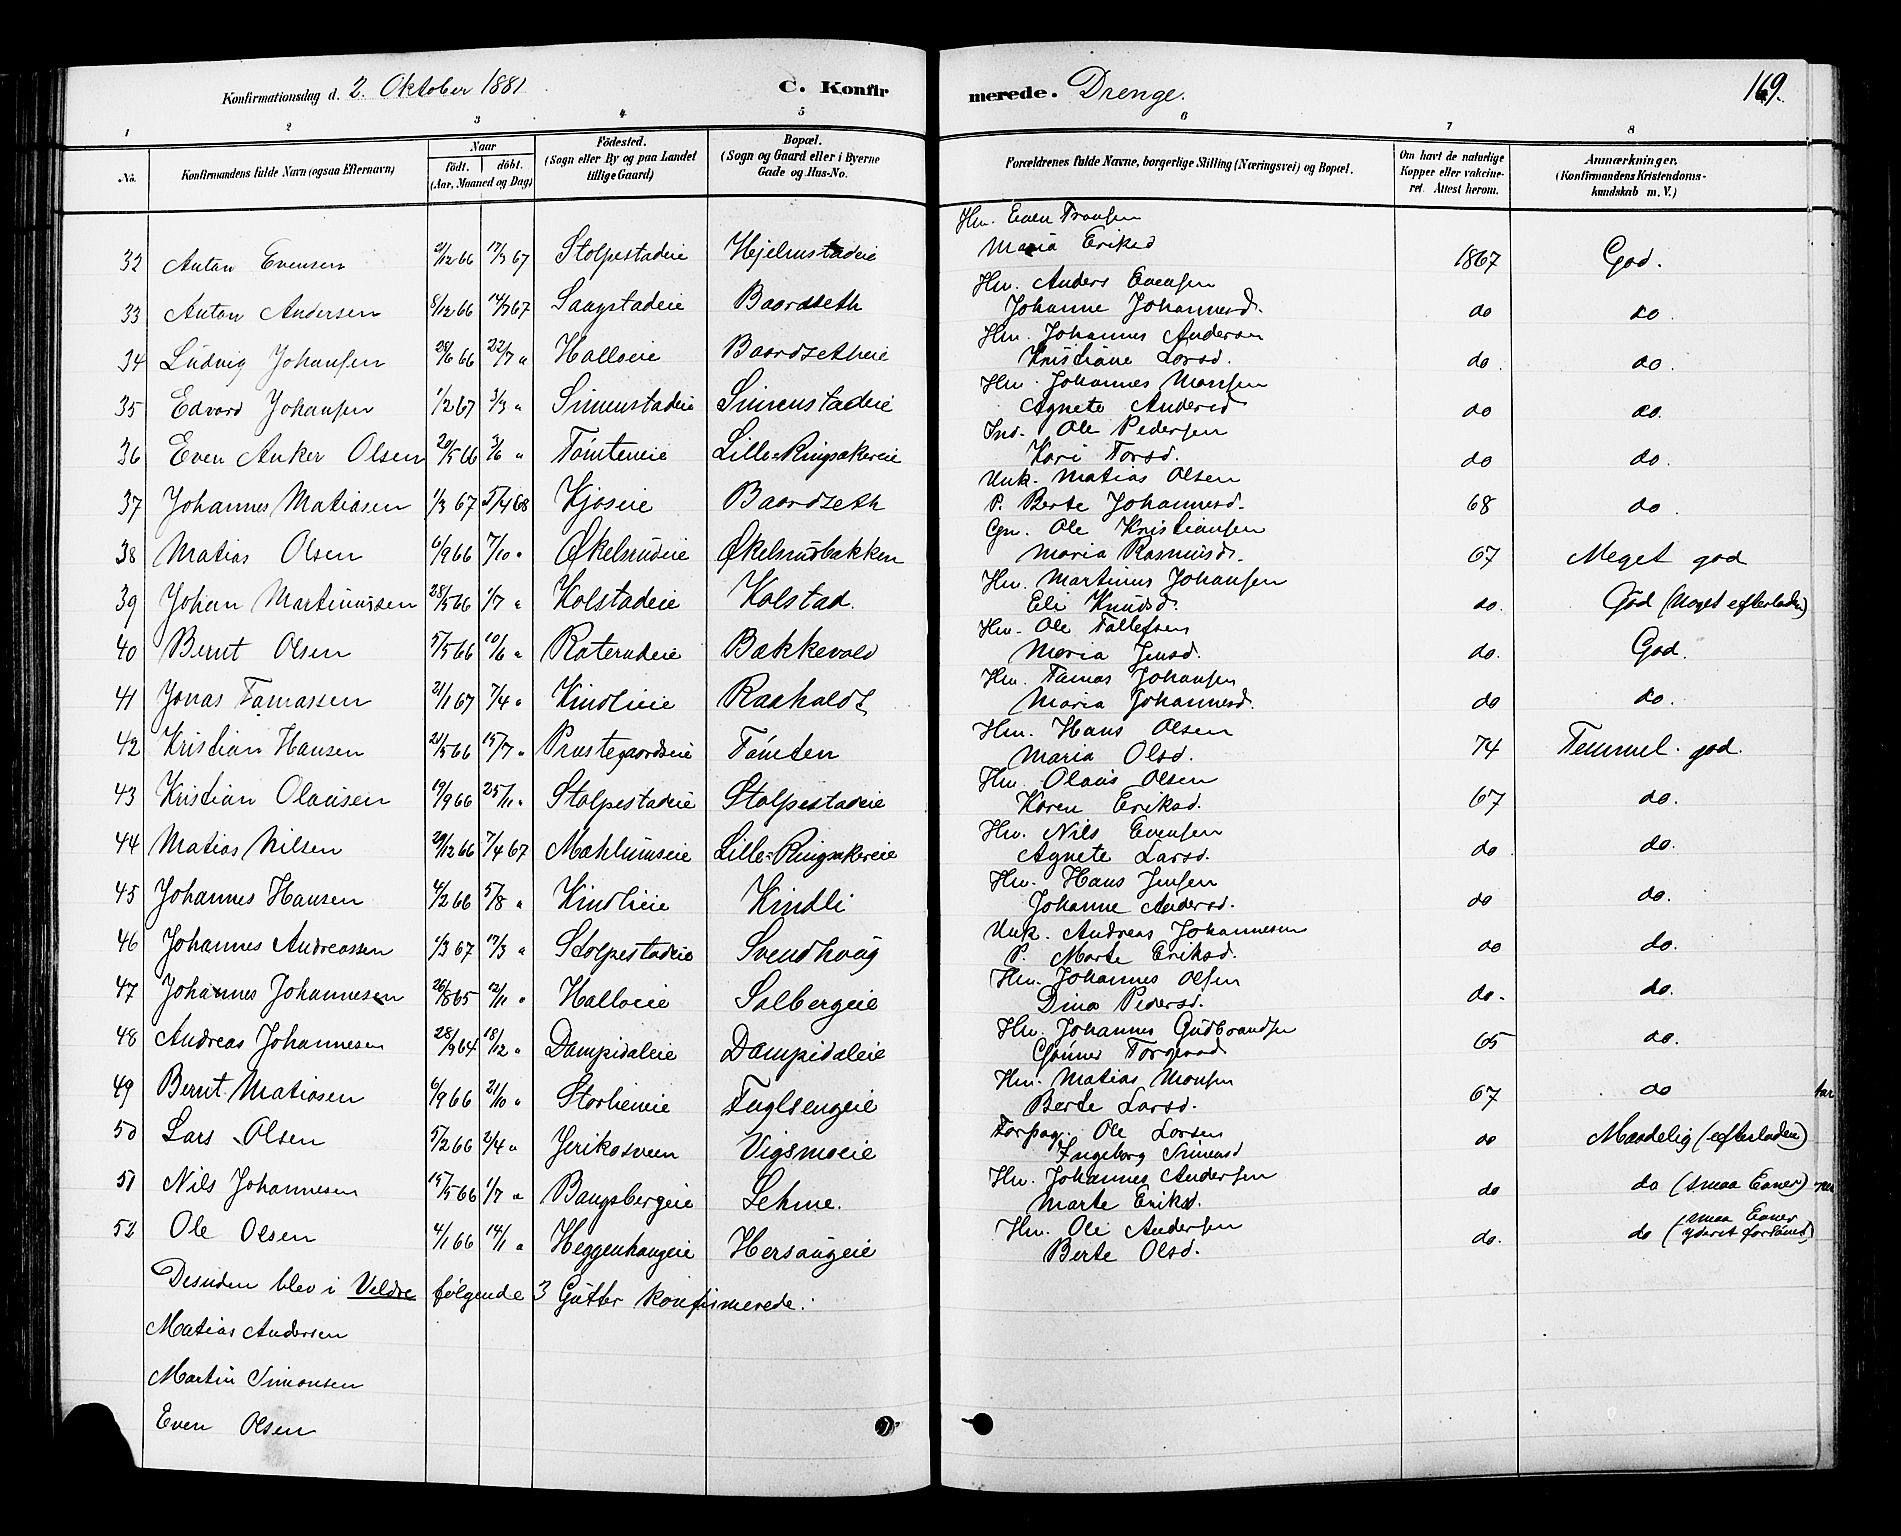 Konfirmationsdag d. 2. Oktober 1881 C. Konfirmerede. Drenge. 169.
1 2 3 4 5 6 7 8
No. Konfirmandens fulde Navn (ogsaa Efternavn) Naar Födt. döbt. (Aar, Maaned og Dag) Födested. (Sogn eller By og paa Landet tillige Gaard) Bopæl. (Sogn og Gaard eller i Byerne Gade og Hus-No. Forældrenes fulde Navne, borgerlige Stilling (Næringsvei) og Bopæl. Om havt de naturlige Kopper eller vakcineret. Attest herom. Anmærkninger. (Konfirmandens Kristendomskundskab m. V.)
32 Anton Evensen 2/12 66 17/3 67 Stolpestadeie Hjelmstadeie Hm. Even Fransen Maria Eriksd 1867 God.
33 Anton Andersen 8/12 66 14/3 67 Saugstadeie Baardseth Hm. Anders Evensen Johanne Johannesd. do do.
34 Ludvig Johansen 28/6 66 22/7 " Halloeie Baardsetheie Hm. Johannes Andersen Kristiane Larsd. do. do.
35 Edvard Johansen 1/2 67 3/3 " Simenstadeie Simenstadeie Hm. Johannes Monsen Agnete Andersd do do.
36 Even Anker Olsen 20/5 66 3/6 " Tömteneie Lille-Ringsakereie Ind. Ole Pedersen Kari Torsd. do do.
37 Johannes Matiasen 1/3 67 5/4 68 Kjoseie Baardseth Unk. Matias Olsen P. Berte Johannesd. 68 do.
38 Matias Olsen 6/9 66 7/10 " Økelsrudeie Økelsrudbakken Gm. Ole Kristiansen Maria Rasmusd. 67 Meget god
39 Johan Martinussen 28/5 66 1/7 " Kolstadeie Kolstad. Hm. Martinus Johansen Eli Knudsd. do. God (Noget efterladen)
40 Bernt Olsen 5/5 66 10/6 " Raterudeie Bakkevold Hm. Ole Tollefsen Maria Jensd. do. God.
41 Jonas Tamassen 21/1 67 7/4 " Kindlieie Raaholdt Hm. Tamas Johansen Maria Johannesd. do do.
42 Kristian Hansen 21/5 66 15/7 " Præstegaardseie Tömten Hm. Hans Olsen Maria Olsd. 74 Temmel. god.
43 Kristian Olausen 19/9 66 25/11 " Stolpestadeie Stolpestadeie Hm. Olaus Olsen Karen Eriksd. 67 do.
44 Matias Nilsen 20/12 66 7/4 67 Mahlumseie Lille-Ringsakereie Hm. Nils Evensen Agnete Larsd. do do.
45 Johannes Hansen 4/2 66 5/8 " Kindlieie Kindli Hm. Hans Jensen Johanne Andersd. do do.
46 Johannes Andreassen 1/3 67 17/3 " Stolpestadeie Svendhaug Unk. Andreas Johannesen P. Marte Eriksd. do do.
47 Johannes Johannesen 26/8 65 12/11 " Halloeie Solbergeie Hm. Johannes Olsen Dina Pedersd. do. do.
48 Andreas Johannesen 28/9 64 18/12 " Dampidaleie Dampidaleie Hm. Johannes Gudbrandsen Gunner Torgersd 65 do.
49 Bernt Matiasen 6/9 66 21/10 " Storheneie Fuglsengeie Hm. Matias Monsen Berte Larsd. 67 do
50 Lars Olsen 5/2 66 2/4 " Jerikosveen Vigsmoeie Forpag. Ole Larsen Ingeborg Simensd do Maadelig (efterladen)
51 Nils Johannesen 15/5 66 1/7 " Bangsbergeie Lehme. Hm. Johannes Andersen Marte Eriksd. do do (smaa Evner)
52 Ole Olsen 4/1 66 14/1 " Heggenhaugeie Hersaugeie Hm. Ole Andersen Berte Olsd. do. do (smaa Evner yderst forsömt)
Desuden blev i Veldre følgende 3 Gutter konfirmerede:
Matias Andersen
Martin Simonsen
Even Olsen